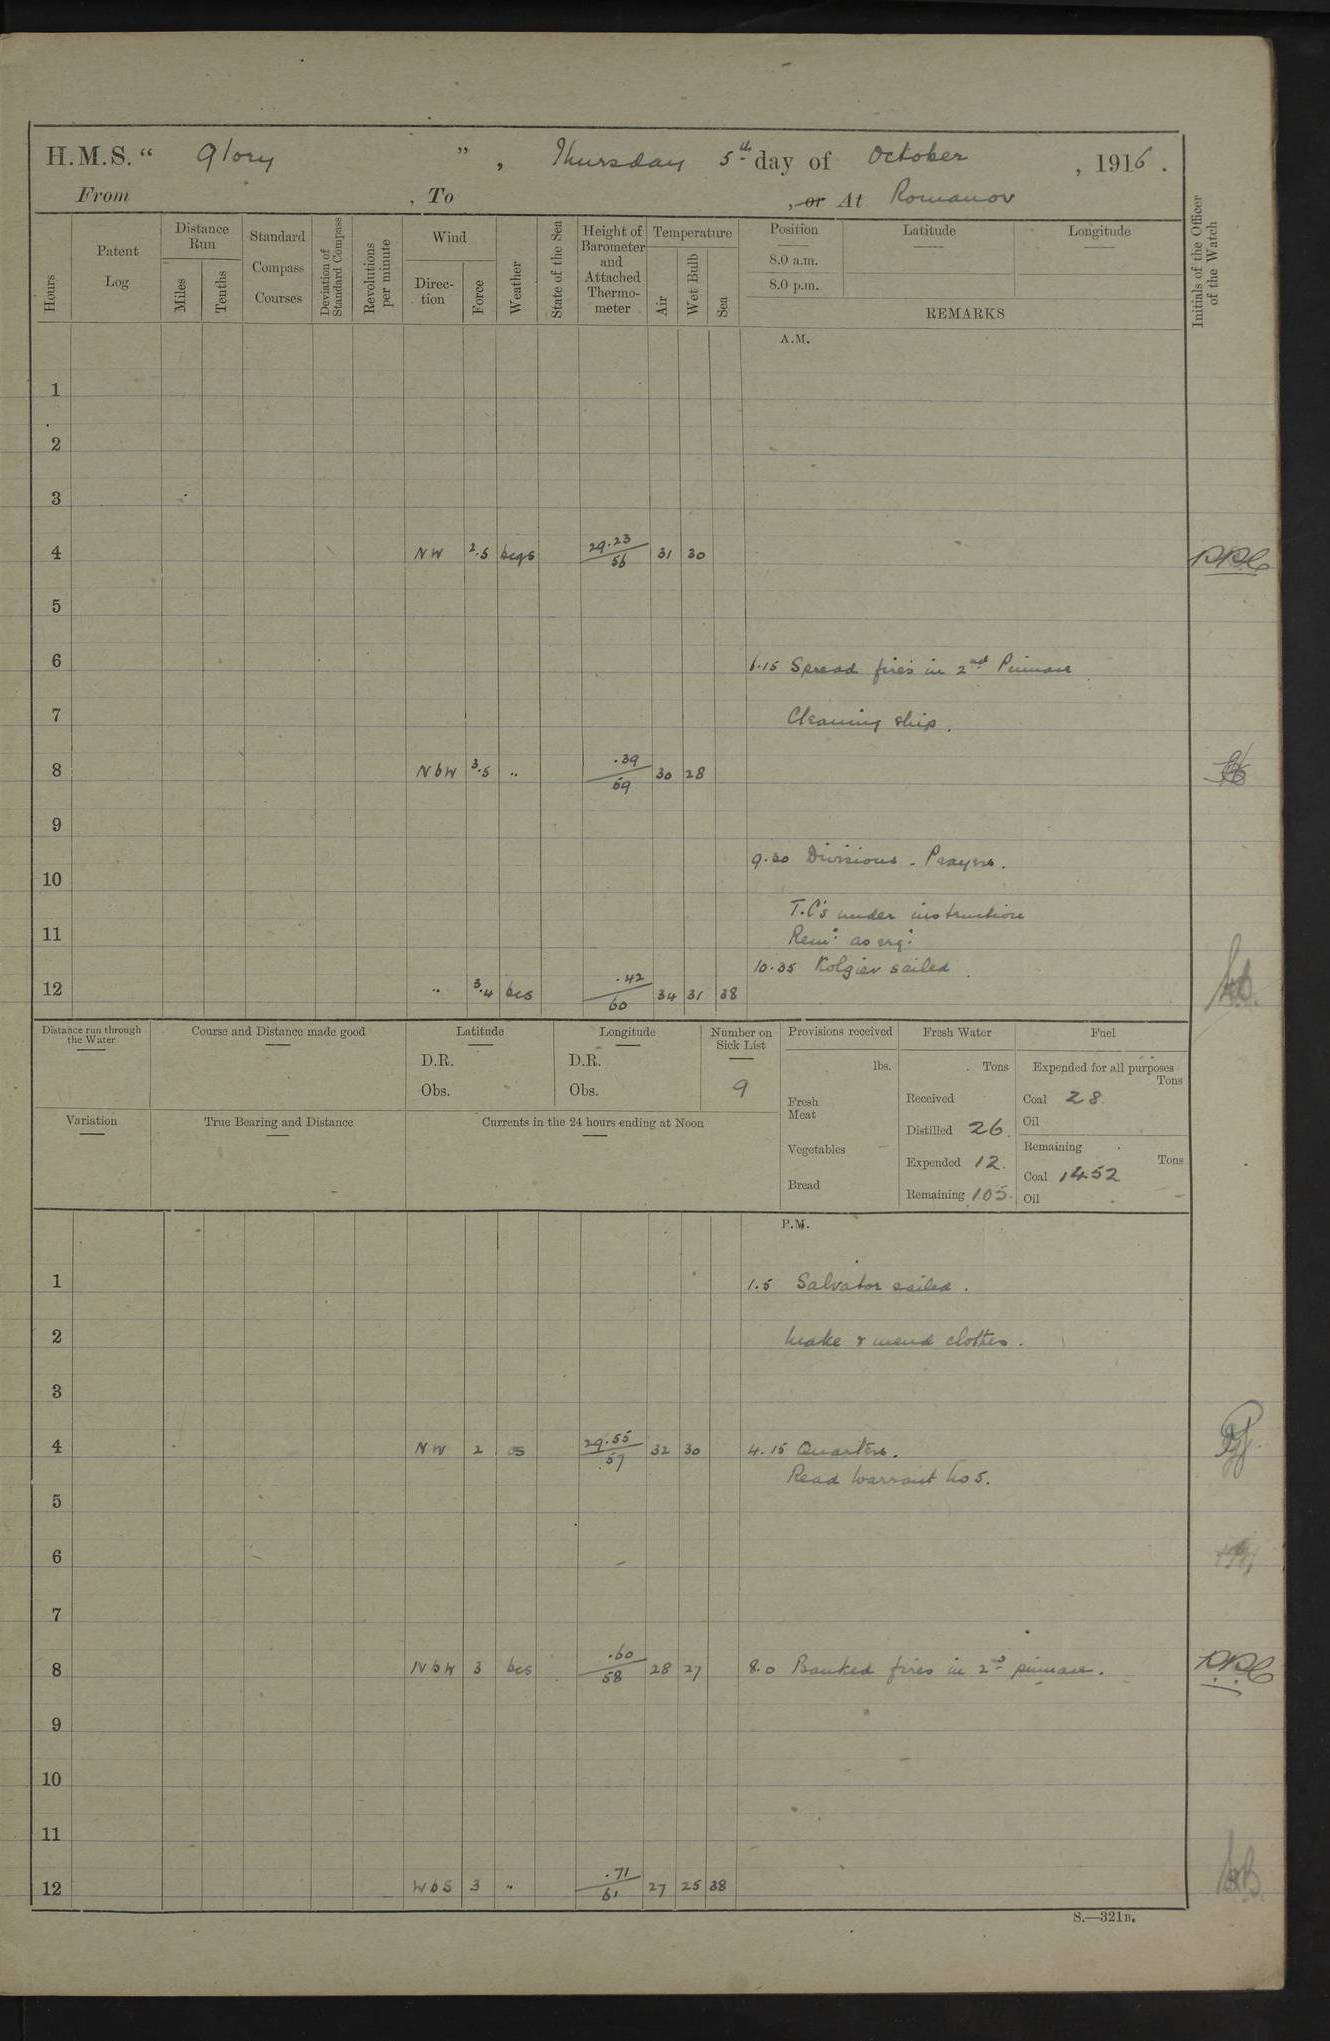 H.M.S. “ Glory ” , Thursday 5th day of October , 1916 .
From , To , or At Romanov
Hours
Patent Log
Distance Run
Miles
Tenths
Standard Compass Courses
Deviation of Standard Compass
Revolutions per minute
Wind
Direction
Force
Weather
State of the Sea
Height of Barometer and Attached Thermometer
Temperature
Air
Wet Bulb
Sea
Position
8.0 a.m.
8.0 p.m.
Latitude
Longitude
REMARKS
Initials of the Officer of the Watch
A.M.
1
2
3
4 NW 2.5 bcqs 29.23/56 31 30
5
6 6.15 Spread fires in 2nd Pinnace
7 Cleaning ship.
8 NbW 3.5 " .39/59 30 28
9
9.30 Divisions - Prayers.
10
T.C's under instruction
11 Remr. as erq:
10.35 Kolgiev sailed.
12 " 3.4 bcs .42/60 34 31 38
Distance run through the Water
Course and Distance made good
Latitude
D.R.
Obs.
Longitude
D.R.
Obs.
Number on Sick List
9
Provisions received
lbs.
Fresh Meat
Vegetables
Bread
Fresh Water
Tons
Received
Distilled 26
Expended 12
Remaining 105
Fuel
Expended for all purposes
Tons
Coal 28
Oil
Remaining
Tons
Coal 1452
Oil
Variation
True Bearing and Distance
Currents in the 24 hours ending at Noon
P.M.
1 1.5 Salvator sailed.
2 Make & mend clothes.
3
4 NW 2 os 29.55/57 32 30 4.15 Quarters.
Read Warrant No 5.
5
6
7
8 NbW 3 bcs .60/58 28 27 8.0 Banked fires in 2nd pinnace.
9
10
11
12 WbS 3 " .71/61 27 25 38
S.—321B.